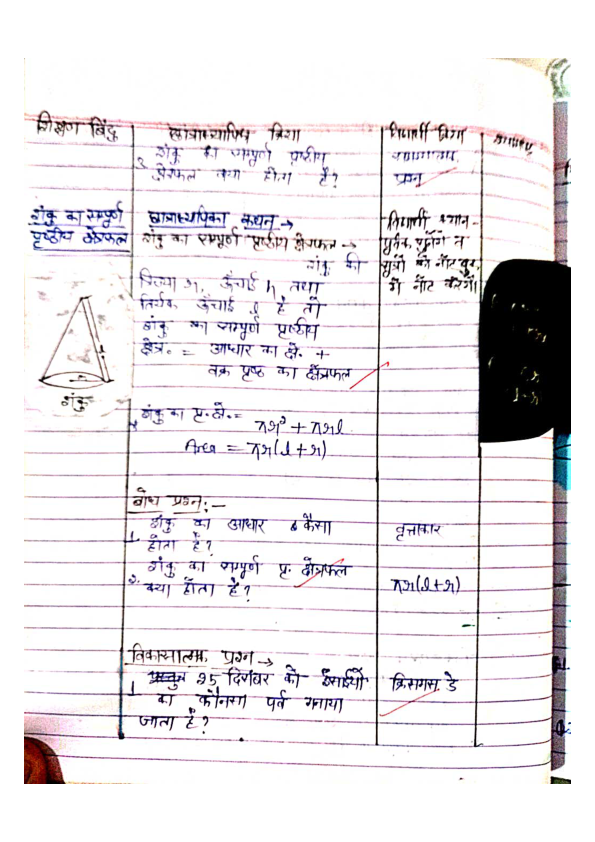 शिक्षण बिंदु
छात्राध्यापिका क्रिया
विद्यार्थी क्रिया
3. शंकु का सम्पूर्ण पृष्ठीय
क्षेत्रफल क्या होता है?
समस्यात्मक
प्रश्न
शंकु का सम्पूर्ण
पृष्ठीय क्षेत्रफल
छात्राध्यापिका कथन →
शंकु का सम्पूर्ण पृष्ठीय क्षेत्रफल →
शंकु की
त्रिज्या r, ऊँचाई h तथा
तिर्यक ऊँचाई l है तो
शंकु का सम्पूर्ण पृष्ठीय
क्षेत्र. = आधार का क्षे. +
वक्र पृष्ठ का क्षेत्रफल
विद्यार्थी ध्यान-
पूर्वक सुनेंगे व
सूत्रों को नोट बुक
में नोट करेंगे।
l
r
शंकु
शंकु का पृ. क्षे. = πr² + πrl
Area = πr(l+r)
बोध प्रश्न:-
1. शंकु का आधार कैसा
होता है?
वृत्ताकार
2. शंकु का सम्पूर्ण पृ. क्षेत्रफल
क्या होता है?
πr(l+r)
विकासात्मक प्रश्न →
1. 25 दिसंबर को ईसाईयों
का कौनसा पर्व मनाया
जाता है?
क्रिसमस डे